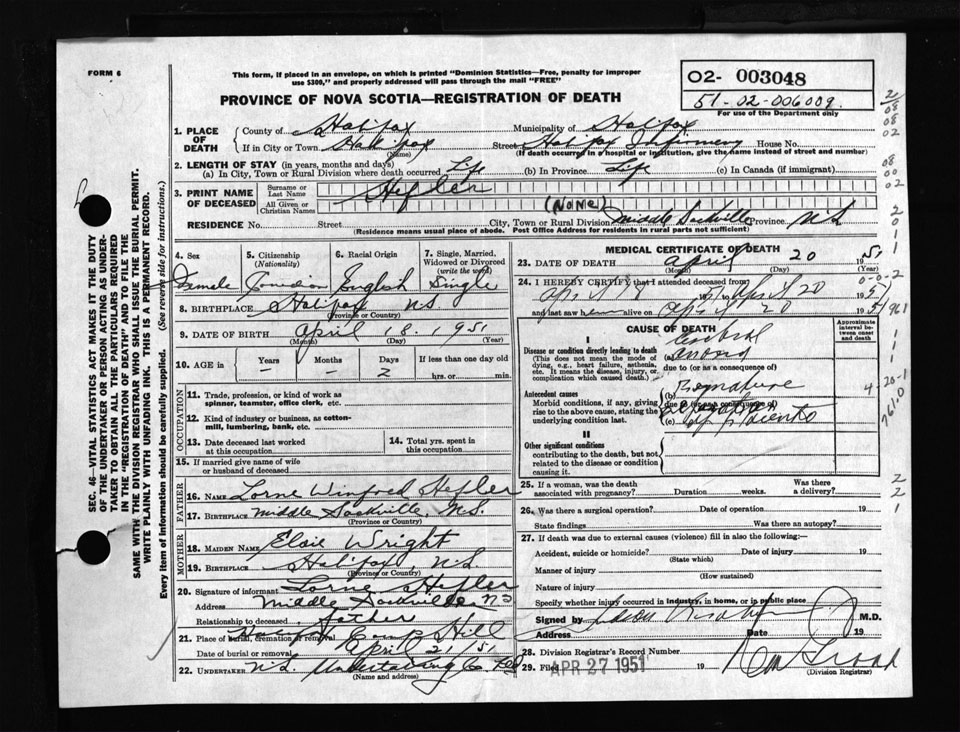 FORM 6
This form, if placed in an envelope, on which is printed "Dominion Statistics—Free, penalty for improper
use $300," and properly addressed will pass through the mail "FREE"
PROVINCE OF NOVA SCOTIA—REGISTRATION OF DEATH
02- 003048
51-02-006009.
For use of the Department only
1. PLACE OF DEATH
County of Halifax Municipality of Halifax
If in City or Town Halifax Street Halifax Infirmary House No.
(Name) (If death occurred in a hospital or institution, give the name instead of street and number)
2. LENGTH OF STAY (in years, months and days)
(a) In City, Town or Rural Division where death occurred Life (b) In Province Life (c) In Canada (if immigrant)
3. PRINT NAME OF DECEASED
Surname or Last Name Hefler
All Given or Christian Names (NONE)
RESIDENCE No. Street City, Town or Rural Division Middle Sackville Province N.S.
(Residence means usual place of abode. Post Office Address for residents in rural parts not sufficient)
4. Sex 5. Citizenship (Nationality) 6. Racial Origin 7. Single, Married, Widowed or Divorced (write the word)
Female Canadian English Single
8. BIRTHPLACE Halifax N.S.
(Province or Country)
9. DATE OF BIRTH April 18. 1951
(Month) (Day) (Year)
10. AGE in Years Months Days If less than one day old
– – 2 hrs. or min.
OCCUPATION
11. Trade, profession, or kind of work as
spinner, teamster, office clerk, etc.
12. Kind of industry or business, as cotton-
mill, lumbering, bank, etc.
13. Date deceased last worked
at this occupation
14. Total yrs. spent in
this occupation
15. If married give name of wife
or husband of deceased
FATHER
16. NAME Lorne Winfred Hefler
17. BIRTHPLACE Middle Sackville, N.S.
(Province or Country)
MOTHER
18. MAIDEN NAME Elsie Wright
19. BIRTHPLACE Halifax, N.S.
(Province or Country)
20. Signature of informant Lorne Hefler
Address Middle Sackville NS
Relationship to deceased Father
21. Place of burial, cremation or removal Camp Hill
Date of burial or removal April 21/51
22. UNDERTAKER N.S. Undertaking Co.
(Name and address)
MEDICAL CERTIFICATE OF DEATH
23. DATE OF DEATH April 20 1951
(Month) (Day) (Year)
24. I HEREBY CERTIFY that I attended deceased from
April 18 to April 20 1951
and last saw h alive on April 20 1951
CAUSE OF DEATH
Approximate interval between onset and death
I
Disease or condition directly leading to death
(This does not mean the mode of
dying, e.g., heart failure, asthenia,
etc. It means the disease, injury, or
complication which caused death.)
Cerebral
due to (or as a consequence of)
Antecedent causes
Morbid conditions, if any, giving
rise to the above cause, stating the
underlying condition last.
(b)
due to (or as a consequence of)
(c) of placenta
II
Other significant conditions
contributing to the death, but not
related to the disease or condition
causing it.
25. If a woman, was the death
associated with pregnancy? Duration weeks. Was there
a delivery?
26. Was there a surgical operation? Date of operation 19
State findings Was there an autopsy?
27. If death was due to external causes (violence) fill in also the following:—
Accident, suicide or homicide? Date of injury 19
(State which)
Manner of injury
(How sustained)
Nature of injury
Specify whether injury occurred in industry, in home, or in public place
Signed by M.D.
Address Date 19
28. Division Registrar's Record Number
29. Filed APR 27 1951 19
(Division Registrar)
SEC. 46—VITAL STATISTICS ACT MAKES IT THE DUTY
OF THE UNDERTAKER OR PERSON ACTING AS UNDER-
TAKER TO OBTAIN ALL THE PARTICULARS REQUIRED
IN THE "REGISTRATION OF DEATH" AND TO FILE THE
SAME WITH THE DIVISION REGISTRAR WHO SHALL ISSUE THE BURIAL PERMIT.
WRITE PLAINLY WITH UNFADING INK. THIS IS A PERMANENT RECORD.
Every item of information should be carefully supplied. (See reverse side for instructions.)
2
08
08
02
08
00
02
2
0
1
1
0-0-2
961
1
1
1
4-20-1
761.0
2
2
1